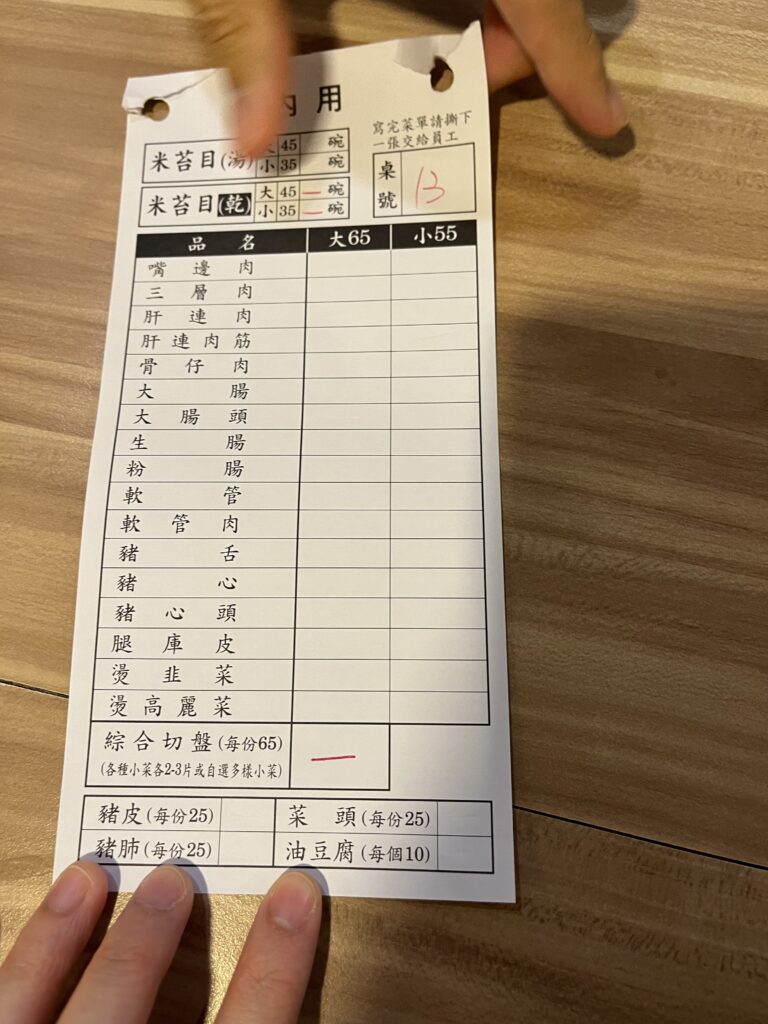 內用
寫完菜單請撕下
一張交給員工
米苔目(湯) 大 45 碗
小 35 碗
米苔目(乾) 大 45 一 碗
小 35 一 碗
桌號 13
品名 大65 小55
嘴邊肉
三層肉
肝連肉
肝連肉筋
骨仔肉
大腸
大腸頭
生腸
粉腸
軟管
軟管肉
豬舌
豬心
豬心頭
腿庫皮
燙韭菜
燙高麗菜
綜合切盤(每份65) 一
(各種小菜各2-3片或自選多樣小菜)
豬皮(每份25) 菜頭(每份25)
豬肺(每份25) 油豆腐(每個10)